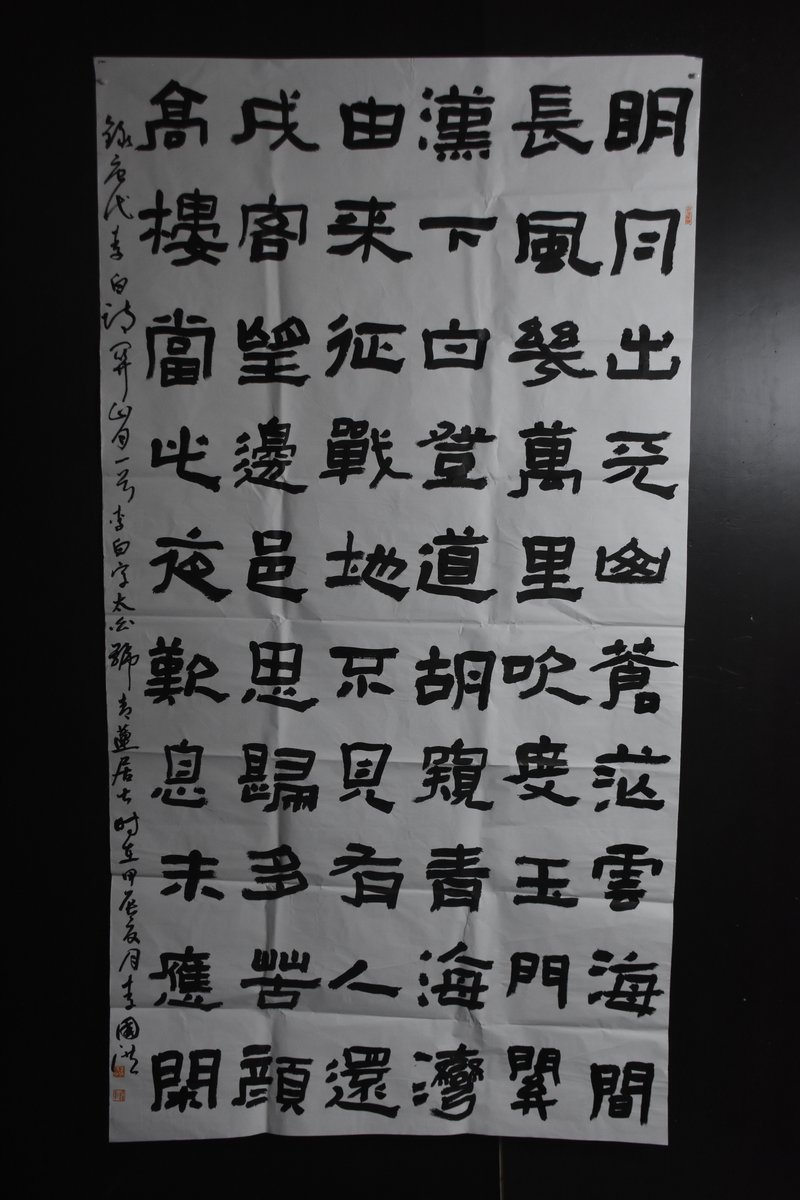 明月出天山蒼茫雲海間
長風幾萬里吹度玉門關
漢下白登道胡窺青海灣
由来征戰地不見有人還
戍客望邊邑思歸多苦顏
高樓當此夜歎息未應閑
錄唐代李白詩關山月一首李白字太白號青蓮居士时在甲辰夏月李國洪